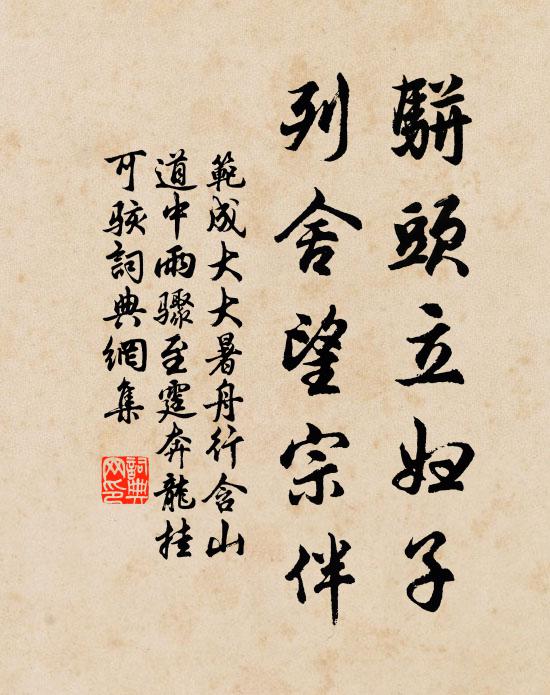 駢頭立婦子
列舍望宗伴
範成大大暑舟行含山
道中雨驟至霆奔龍挂
可駭詞典網集
詞典網印